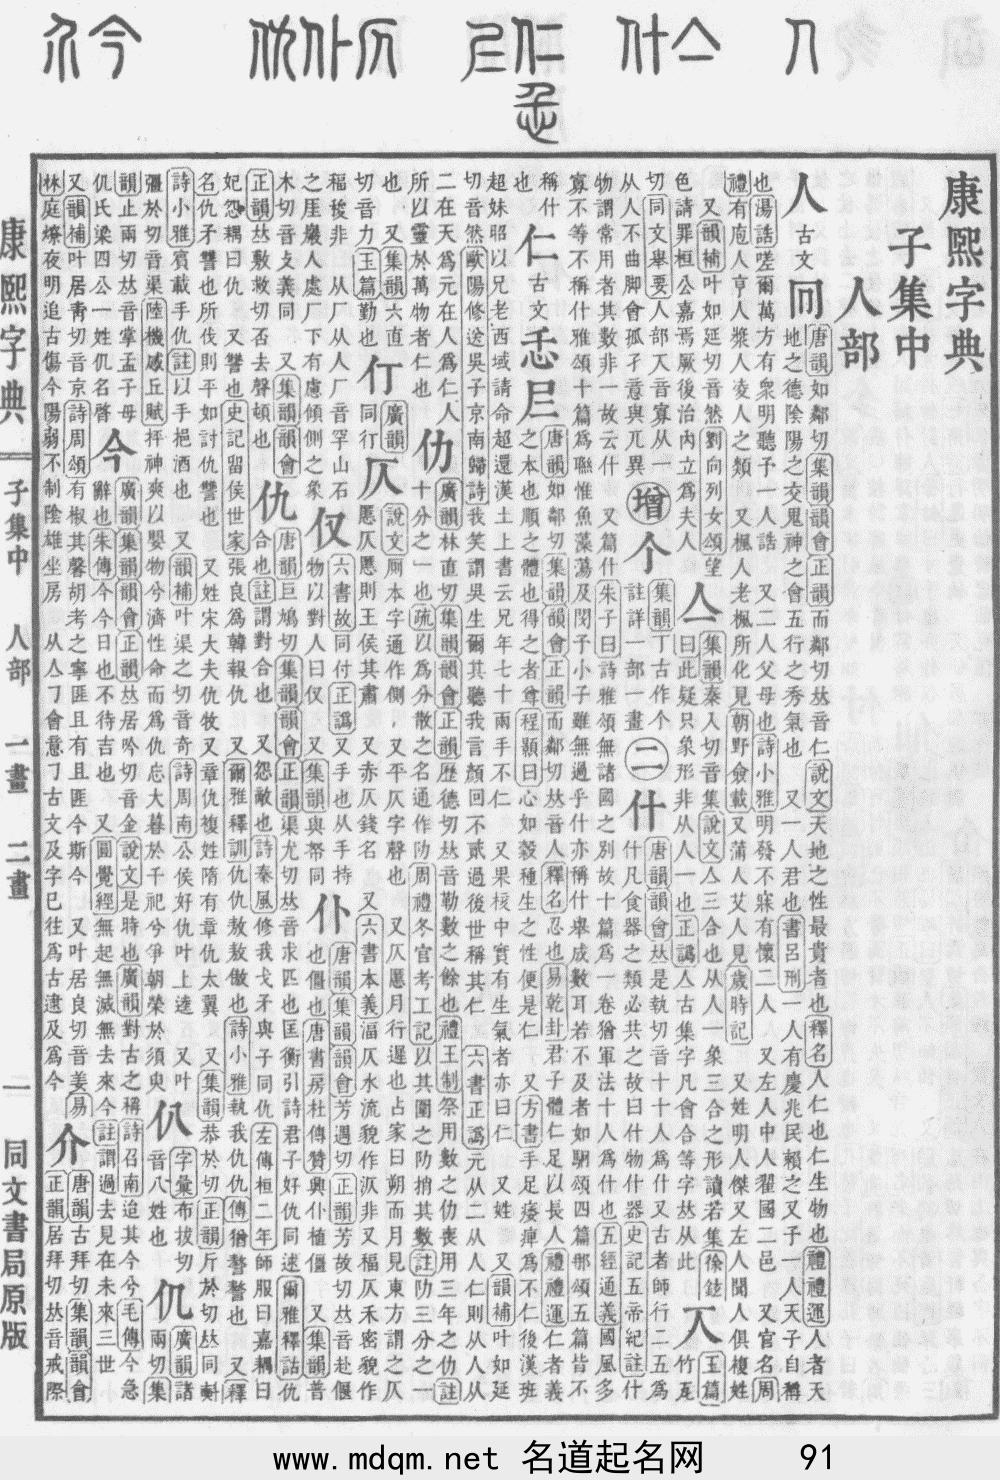 人 亼 什 仁 仄 仆 仇 今 介
康熙字典
子集中
人部
人 古文 唐韻如鄰切集韻韻會正韻而鄰切𠀤音仁說文天地之性最貴者也釋名人仁也仁生物也禮禮運人者天
地之德陰陽之交鬼神之會五行之秀氣也 又一人君也書呂刑一人有慶兆民賴之又予一人天子自稱
也湯誥嗟爾萬方有衆明聽予一人誥 又二人父母也詩小雅明發不寐有懷二人 又左人中人翟國二邑 又官名周
禮有庖人亨人漿人凌人之類又楓人老楓所化見朝野僉載又蒲人艾人見歲時記 又姓明人傑又左人聞人俱複姓
又韻補叶如延切音然劉向列女頌望
色請罪桓公嘉焉厥後治內立爲夫人
亼 集韻秦入切音集說文亼三合也从人一象三合之形讀若集徐鉉
曰此疑只象形非从人一也正譌亼古集字凡會合等字𠀤从此
玉篇竹瓦
切同文舉要人部音寡从一
从人不曲脚會孤孑意與兀異
增 个 集韻丁古作个
註詳丨部一畫
二 什 唐韻韻會𠀤是執切音十十人爲什又古者師行二五爲
什凡食器之類必共之故曰什物什器史記五帝紀註什
物謂常用者其數非一故云什 又篇什朱子曰詩雅頌無諸國之別故十篇爲一卷猶軍法十人爲什也五經通義國風多
寡不等不稱什雅頌十篇爲聯惟魚藻蕩及閔予小子雖無過乎什亦稱什舉成數耳若不及者如駉頌四篇那頌五篇皆不
稱什
也
仁 古文 忎 𡰥 唐韻如鄰切集韻韻會正韻而鄰切𠀤音人釋名忍也易乾卦君子體仁足以長人禮禮運仁者義
之本也順之體也得之者尊程顥曰心如穀種生之性便是仁 又方書手足痿痺爲不仁後漢班
超妹昭以兄老西域請命超還漢土上書云兄年七十兩手不仁 又果核中實有生氣者亦曰仁 又姓 又韻補叶如延
切音然歐陽修送吳子京南歸詩我笑謂吳生爾其聽我言顏回不貳過後世稱其仁 六書正譌元从二从人仁則从人从
二在天爲元在人爲仁人
所以靈於萬物者仁也
仂 廣韻林直切集韻韻會正韻歷德切𠀤音勒數之餘也禮王制祭用數之仂喪用三年之仂註
十分之一也疏以爲分散之名通作阞周禮冬官考工記以其圍之阞捎其數註阞三分之一
也 又集韻六直
切音力玉篇勤也
仃 廣韻
同行
仄 說文厠本字通作側 又平仄字聲也 又仄慝月行遲也占家曰朔而月見東方謂之仄
慝仄慝則王侯其肅 又赤仄錢名 又六書本義湢仄水流貌作汳非又福仄禾密貌作
福稄非 从厂从人厂音罕山石
之厓巖人處厂下有慮傾側之象
仅 六書故同付正譌从手也从手持
物以對人曰仅 又集韻與帑同
仆 唐韻集韻韻會芳遇切正韻芳故切𠀤音赴偃
也僵也唐書房杜傳贊興仆植僵 又集韻普
木切音攴義同 又集韻韻會
正韻𠀤敷救切否去聲頓也
仇 唐韻巨鳩切集韻韻會正韻渠尤切𠀤音求匹也匡衡引詩君子好仇同逑爾雅釋詁仇
合也註謂對合也 又怨敵也詩秦風修我戈矛與子同仇左傳桓二年師服曰嘉耦曰
妃怨耦曰仇 又讐也史記留侯世家張良爲韓報仇 又爾雅釋訓仇仇敖敖傲也詩小雅執我仇仇傳猶謷謷也 又釋
名仇矛讐也所伐則平如討仇讐也 又姓宋大夫仇牧又章仇複姓隋有章仇太翼 又集韻恭於切正韻斤於切𠀤同㪺
詩小雅賓載手仇註以手挹酒也 又韻補叶渠之切音奇詩周南公侯好仇叶上逵 又叶
彊於切音渠陸機感丘賦抨神爽以嬰物兮濟性命而爲仇忘大暮於千祀兮爭朝榮於須臾
仈 字彙布拔切
音八姓也
仉 廣韻諸
兩切集
韻止兩切𠀤音掌孟子母
仉氏梁四公一姓仉名啓
今 廣韻集韻韻會正韻𠀤居吟切音金說文是時也廣韻對古之稱詩召南迨其今兮毛傳今急
辭也朱傳今今日也不待吉也 又圓覺經無起無滅無去來今註謂過去見在未來三世
又韻補叶居靑切音京詩周頌有椒其馨胡考之寧匪且有且匪今斯今 又叶居良切音姜易
林庭燎夜明追古傷今陽弱不制陰雄坐房 从亼㇆會意㇆古文及字已往爲古逮及爲今
介 唐韻古拜切集韻韻會
正韻居拜切𠀤音戒際
康熙字典 子集中 人部 一畫 二畫 一 同文書局原版
www.mdqm.net 名道起名网 91